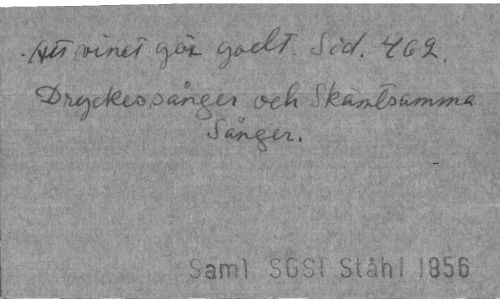 Att vinet gör godt. Sid. 462.
Dryckessånger och Skämtsamma
Sånger.
Saml SGS1 Ståhl 1856